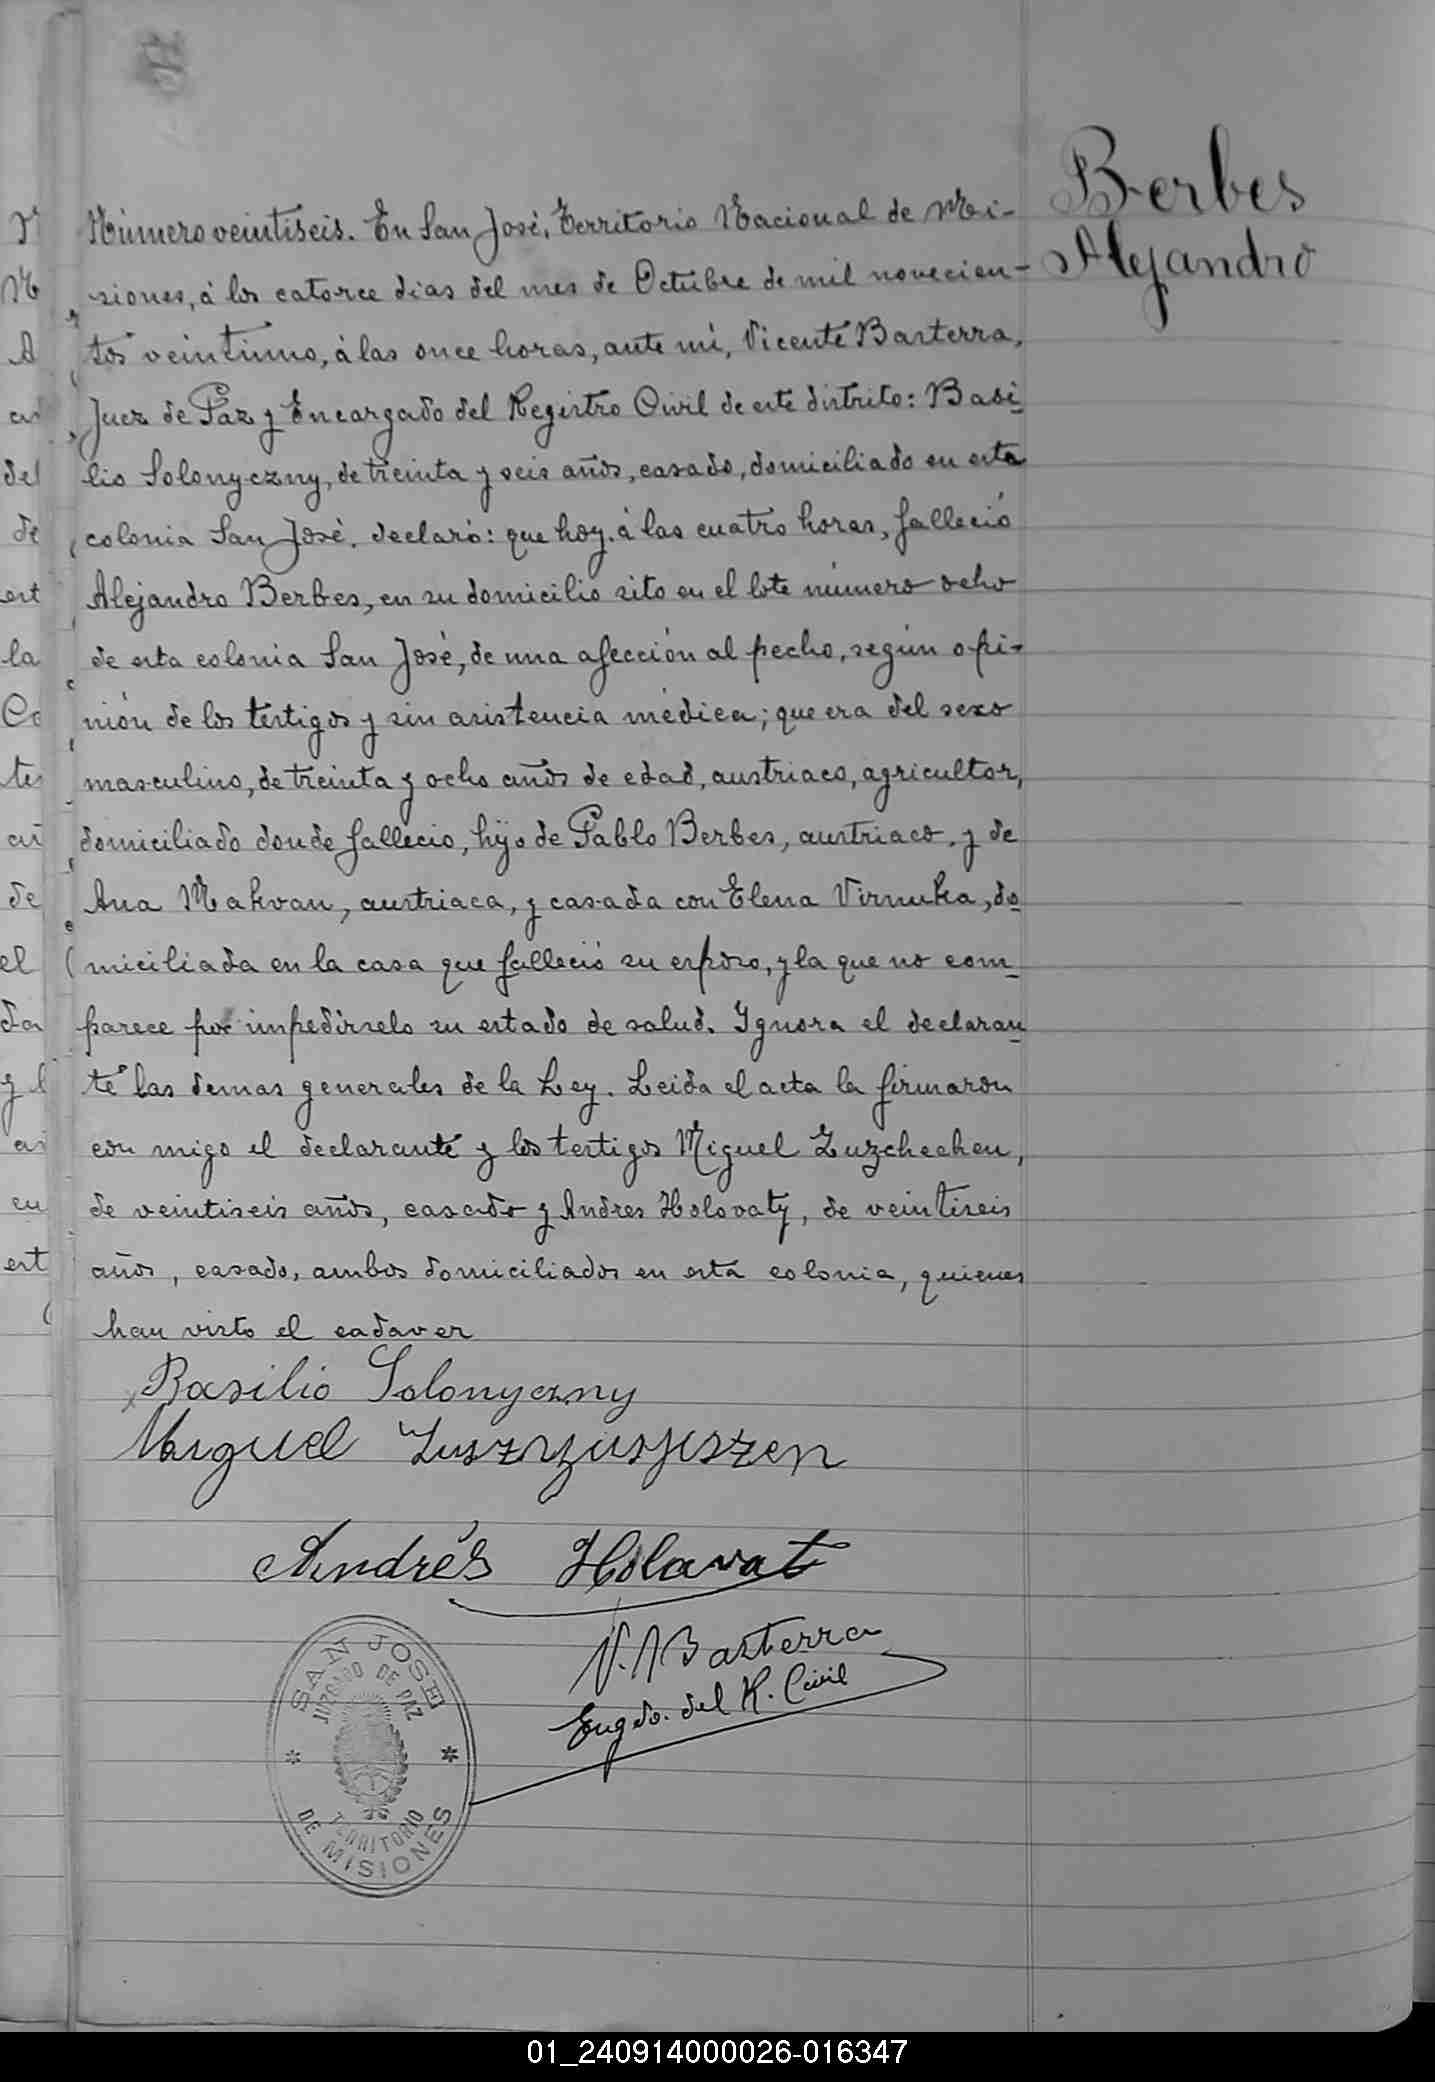 Berbes
Alejandro
Número veintiseis. En San José, Territorio Nacional de Mi-
siones, á los catorce dias del mes de Octubre de mil novecien-
tos veintiuno, á las once horas, ante mi, Vicente Basterra,
Juez de Paz y Encargado del Registro Civil de este distrito: Basi-
lio Solonyczny, de treinta y seis años, casado, domiciliado en esta
colonia San José, declaró: que hoy, á las cuatro horas, falleció
Alejandro Berbes, en su domicilio sito en el lote número ocho
de esta colonia San José, de una afección al pecho, según opi-
nión de los testigos y sin asistencia médica; que era del sexo
masculino, de treinta y ocho años de edad, austriaco, agricultor,
domiciliado donde fallecio, hijo de Pablo Berbes, austriaco, y de
Ana Makvan, austriaca, y casada con Elena Virnuka, do-
miciliada en la casa que falleció su esposo, y la que no com-
parece por impedirselo su estado de salud. Ignora el declaran-
te las demas generales de la Ley. Leida el acta la firmaron
con migo el declarante y los testigos Miguel Luzchechen,
de veintiseis años, casado y Andres Holovaty, de veintiseis
años, casado, ambos domiciliados en esta colonia, quienes
han visto el cadaver
Basilio Solonyczny
Miguel
Andrés Holavat
V. Basterra
Engdo. del R. Civil
SAN JOSE
JUZGADO DE PAZ
TERRITORIO
DE MISIONES
01_240914000026-016347